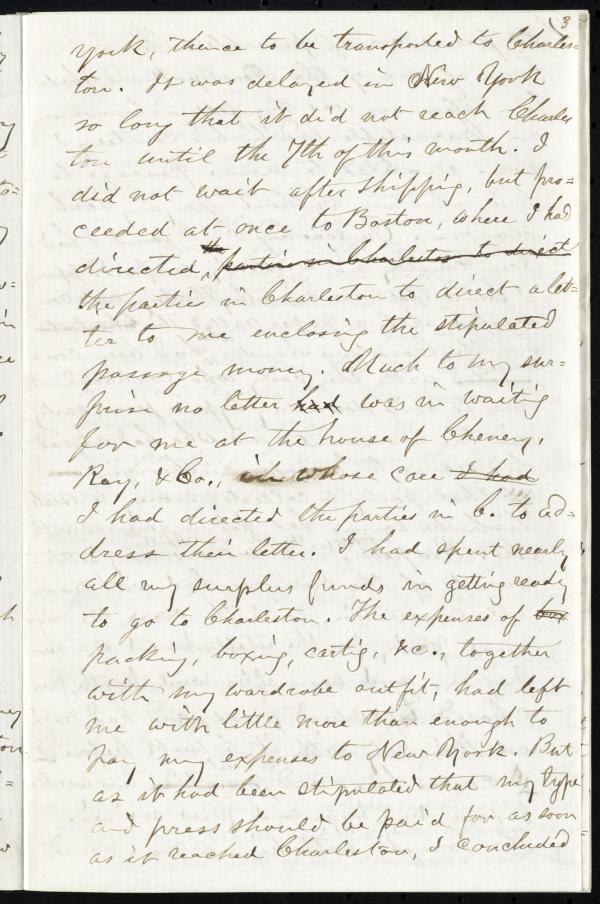 3
York, thence to be transported to Charles=
ton. It was delayed in New York
so long that it did not reach Charles
ton until the 7th of this month. I
did not wait after shipping, but pro=
ceeded at once to Boston, where I had
directed, the parties in Charleston to direct
the parties in Charleston to direct a let=
ter to me enclosing the stipulated
passage money. Much to my sur=
prise no letter had was in waiting
for me at the house of Cheney,
Ray, & Co., in whose care I had
I had directed the parties in C. to ad=
dress their letter. I had spent nearly
all my surplus funds in getting ready
to go to Charleston. The expenses of box
packing, boxing, cartig, &c., together
with my wardrobe outfit, had left
me with little more than enough to
pay my expenses to New York. But
as it had been stipulated that my type
and press should be paid for as soon
as it reached Charleston, I concluded